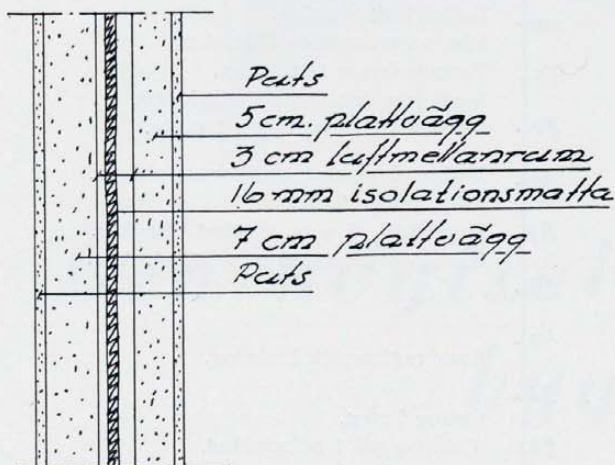 Puts
5 cm. plattvägg
3 cm luftmellanrum
16 mm isolationsmatta
7 cm plattvägg
Puts